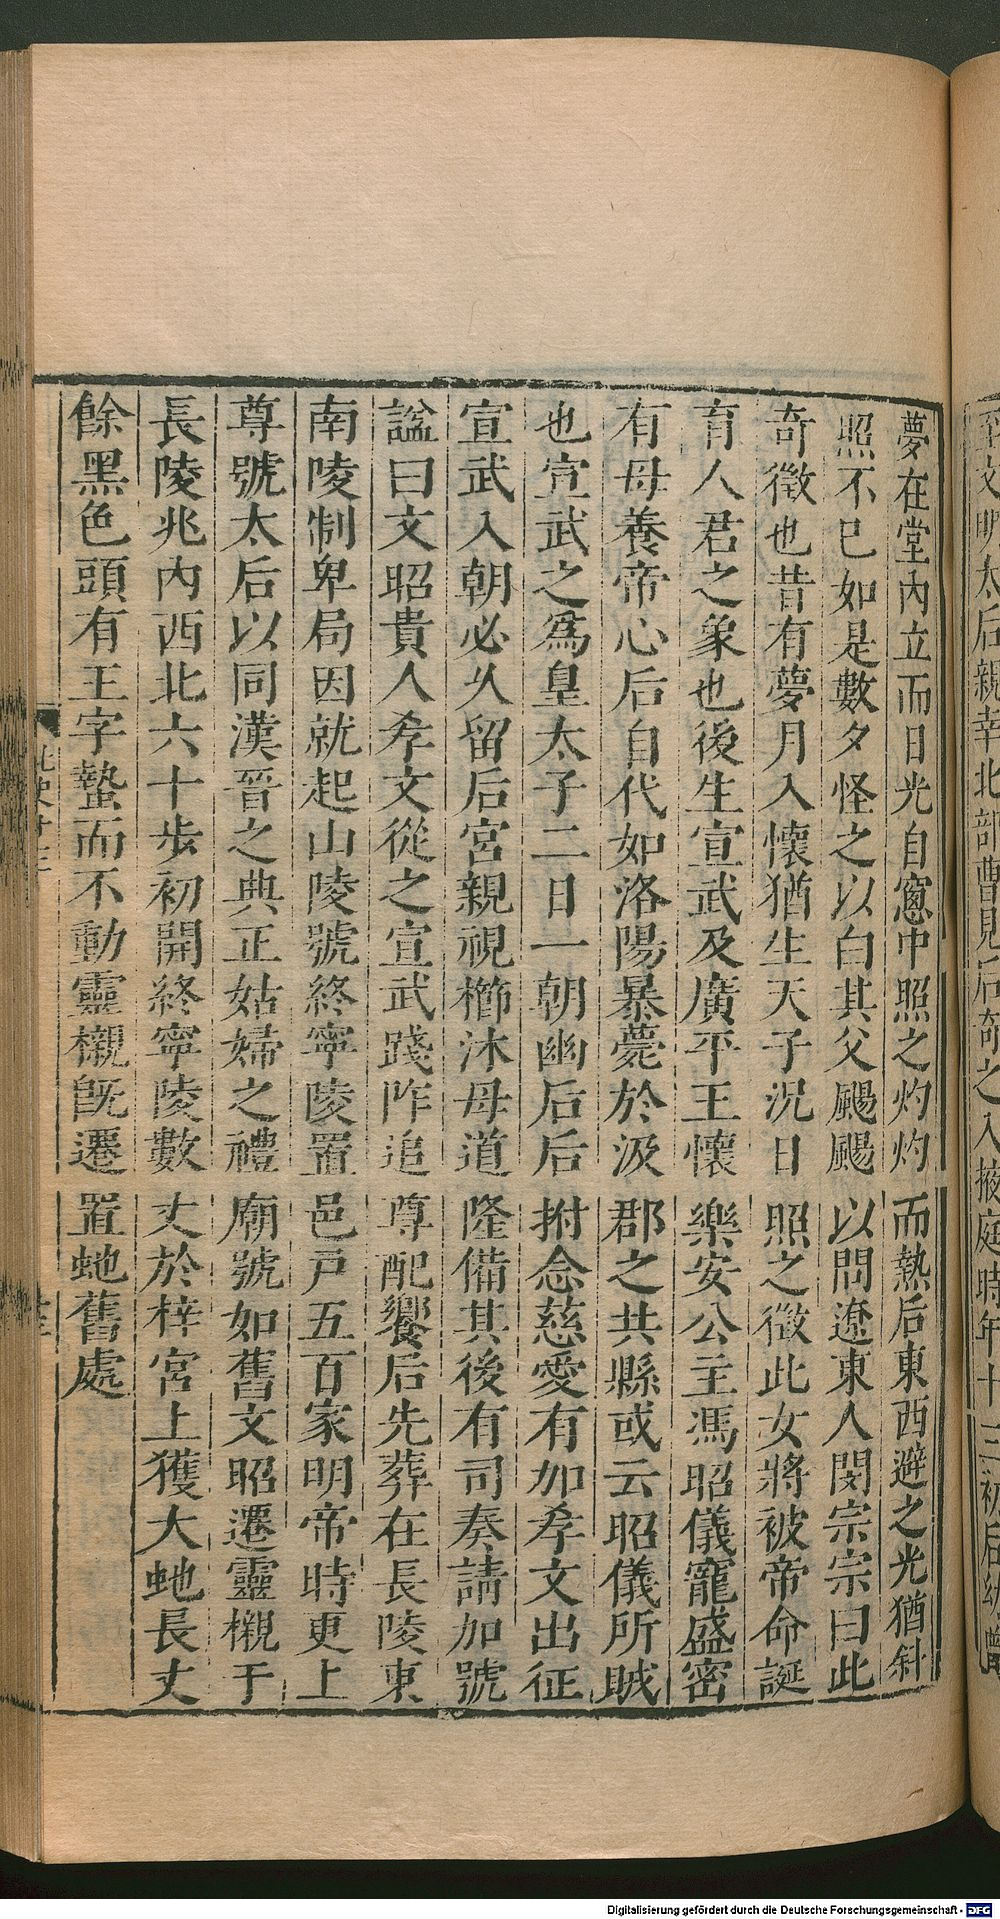 至文明太后親幸北部曹見后奇之入掖庭時年十三初后幼曾
夢在堂內立而日光自窻中照之灼灼而熱后東西避之光猶斜
照不已如是數夕怪之以白其父颺颺以問遼東人閔宗宗曰此
奇徵也昔有夢月入懷猶生天子況日照之徵此女將被帝命誕
育人君之象也後生宣武及廣平王懷樂安公主馮昭儀寵盛密
有母養帝心后自代如洛陽暴薨於汲郡之共縣或云昭儀所賊
也宣武之爲皇太子二日一朝幽后后拊念慈愛有加孝文出征
宣武入朝必久留后宮親視櫛沐母道隆備其後有司奏請加號
謚曰文昭貴人孝文從之宣武踐阼追尊配饗后先葬在長陵東
南陵制卑局因就起山陵號終寧陵置邑戸五百家明帝時更上
尊號太后以同漢晉之典正姑婦之禮廟號如舊文昭遷靈櫬于
長陵兆內西北六十步初開終寧陵數丈於梓宮上獲大虵長丈
餘黑色頭有王字蟄而不動靈櫬旣遷置虵舊處
北史十三
Digitalisierung gefördert durch die Deutsche Forschungsgemeinschaft - DFG